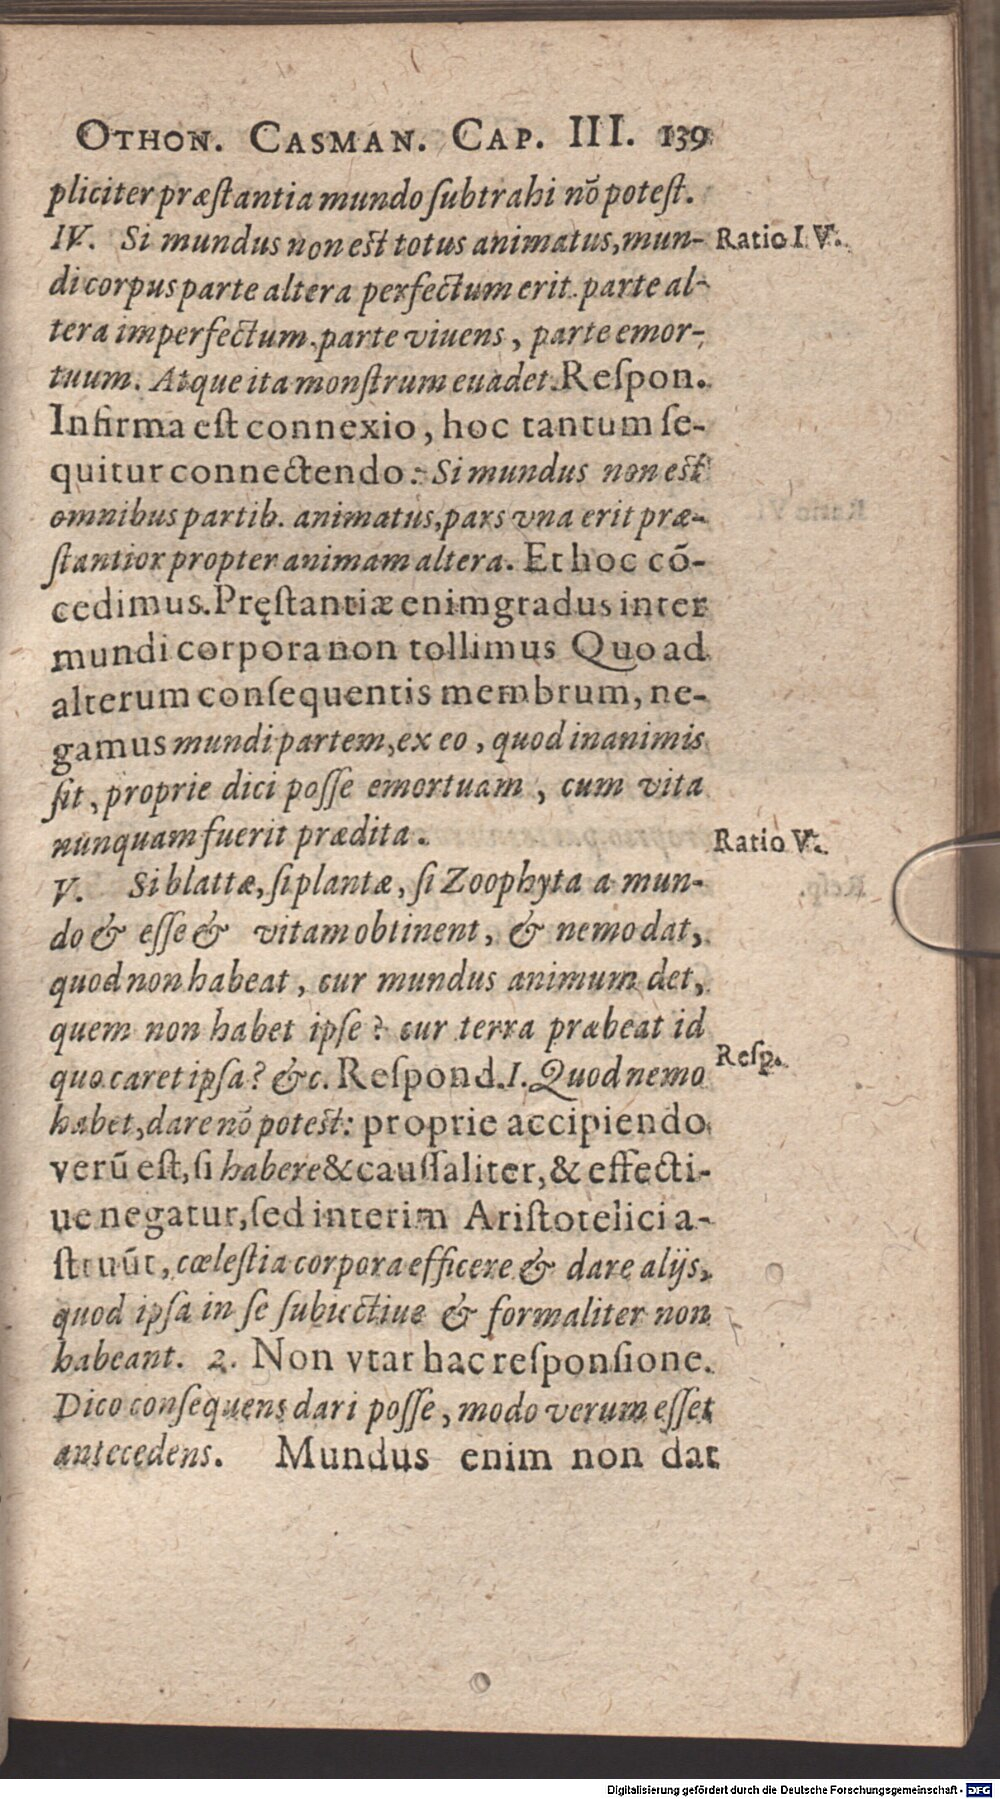 OTHON. CASMAN. CAP. III. 139
pliciter præſtantia mundo ſubtrahi nō poteſt.
IV. Si mundus non eſt totus animatus, mun-
Ratio IV.
di corpus parte altera perfectum erit. parte al-
tera imperfectum. parte viuens, parte emor-
tuum. Atque ita monſtrum euadet. Reſpon.
Infirma eſt connexio, hoc tantum ſe-
quitur connectendo: Si mundus non eſt
omnibus partib. animatus, pars vna erit præ-
ſtantior propter animam altera. Et hoc cō-
cedimus. Pręſtantiæ enim gradus inter
mundi corpora non tollimus Quo ad
alterum conſequentis membrum, ne-
gamus mundi partem, ex eo, quod inanimis
ſit, proprie dici poſſe emortuam, cum vita
nunquam fuerit prædita.
V. Si blattæ, ſi plantæ, ſi Zoophyta a mun-
Ratio V.
do & eſſe & vitam obtinent, & nemo dat,
quod non habeat, cur mundus animum det,
quem non habet ipſe? cur terra præbeat id
quo caret ipſa? &c. Reſpond. I. Quod nemo
Reſp.
habet, dare nō poteſt: proprie accipiendo
verū eſt, ſi habere & cauſſaliter, & effecti-
ue negatur, ſed interim Ariſtotelici a-
ſtruūt, cœleſtia corpora efficere & dare alijs,
quod ipſa in ſe ſubiectiue & formaliter non
habeant. 2. Non vtar hac reſponſione.
Dico conſequens dari poſſe, modo verum eſſet
antecedens. Mundus enim non dat
Digitalisierung gefördert durch die Deutsche Forschungsgemeinschaft - DFG